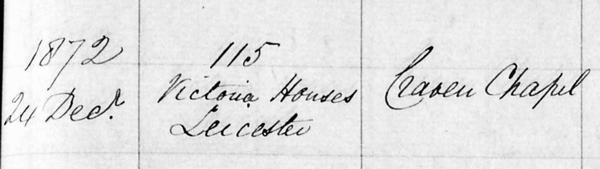 1872
24 Decr.
115
Victoria Houses
Leicester
Craven Chapel